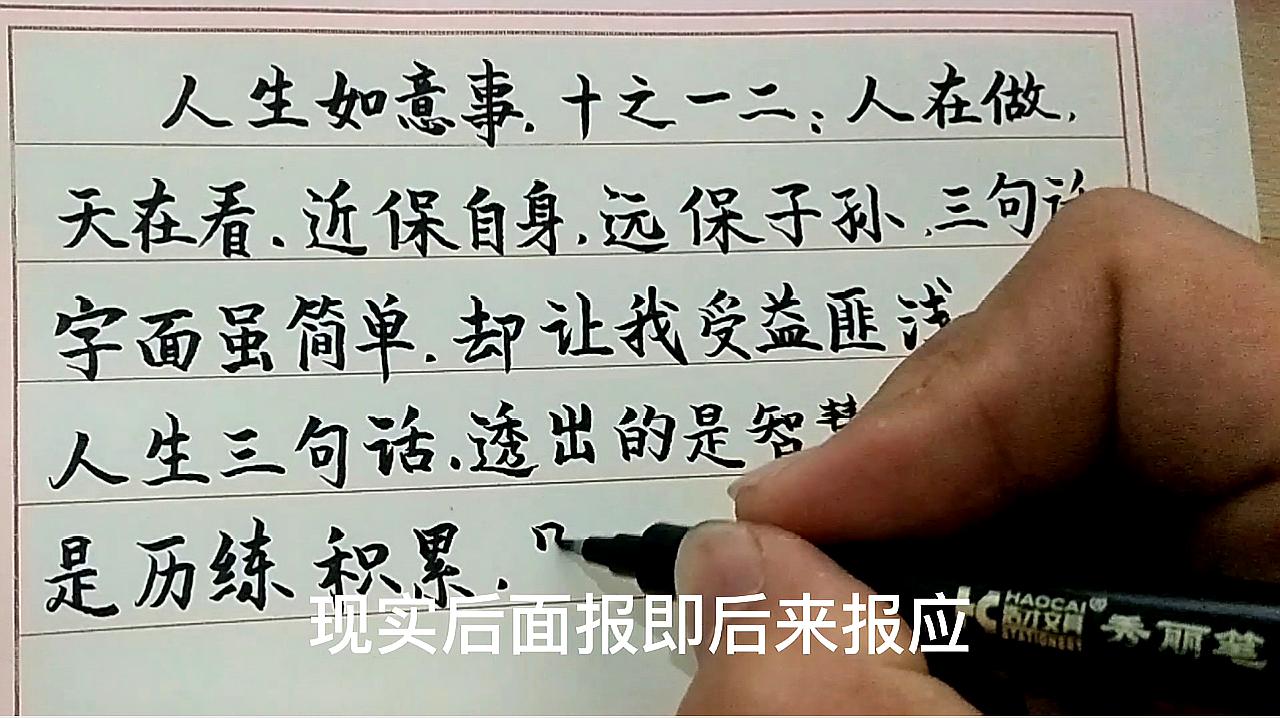 人生如意事.十之一二;人在做,
天在看.近保自身,远保子孙,三句
字面虽简单.却让我受益匪浅
人生三句话.透出的是智慧
是历练积累.
现实后面报即后来报应
HAOCAI®
浩才文具
STATIONERY
秀丽笔